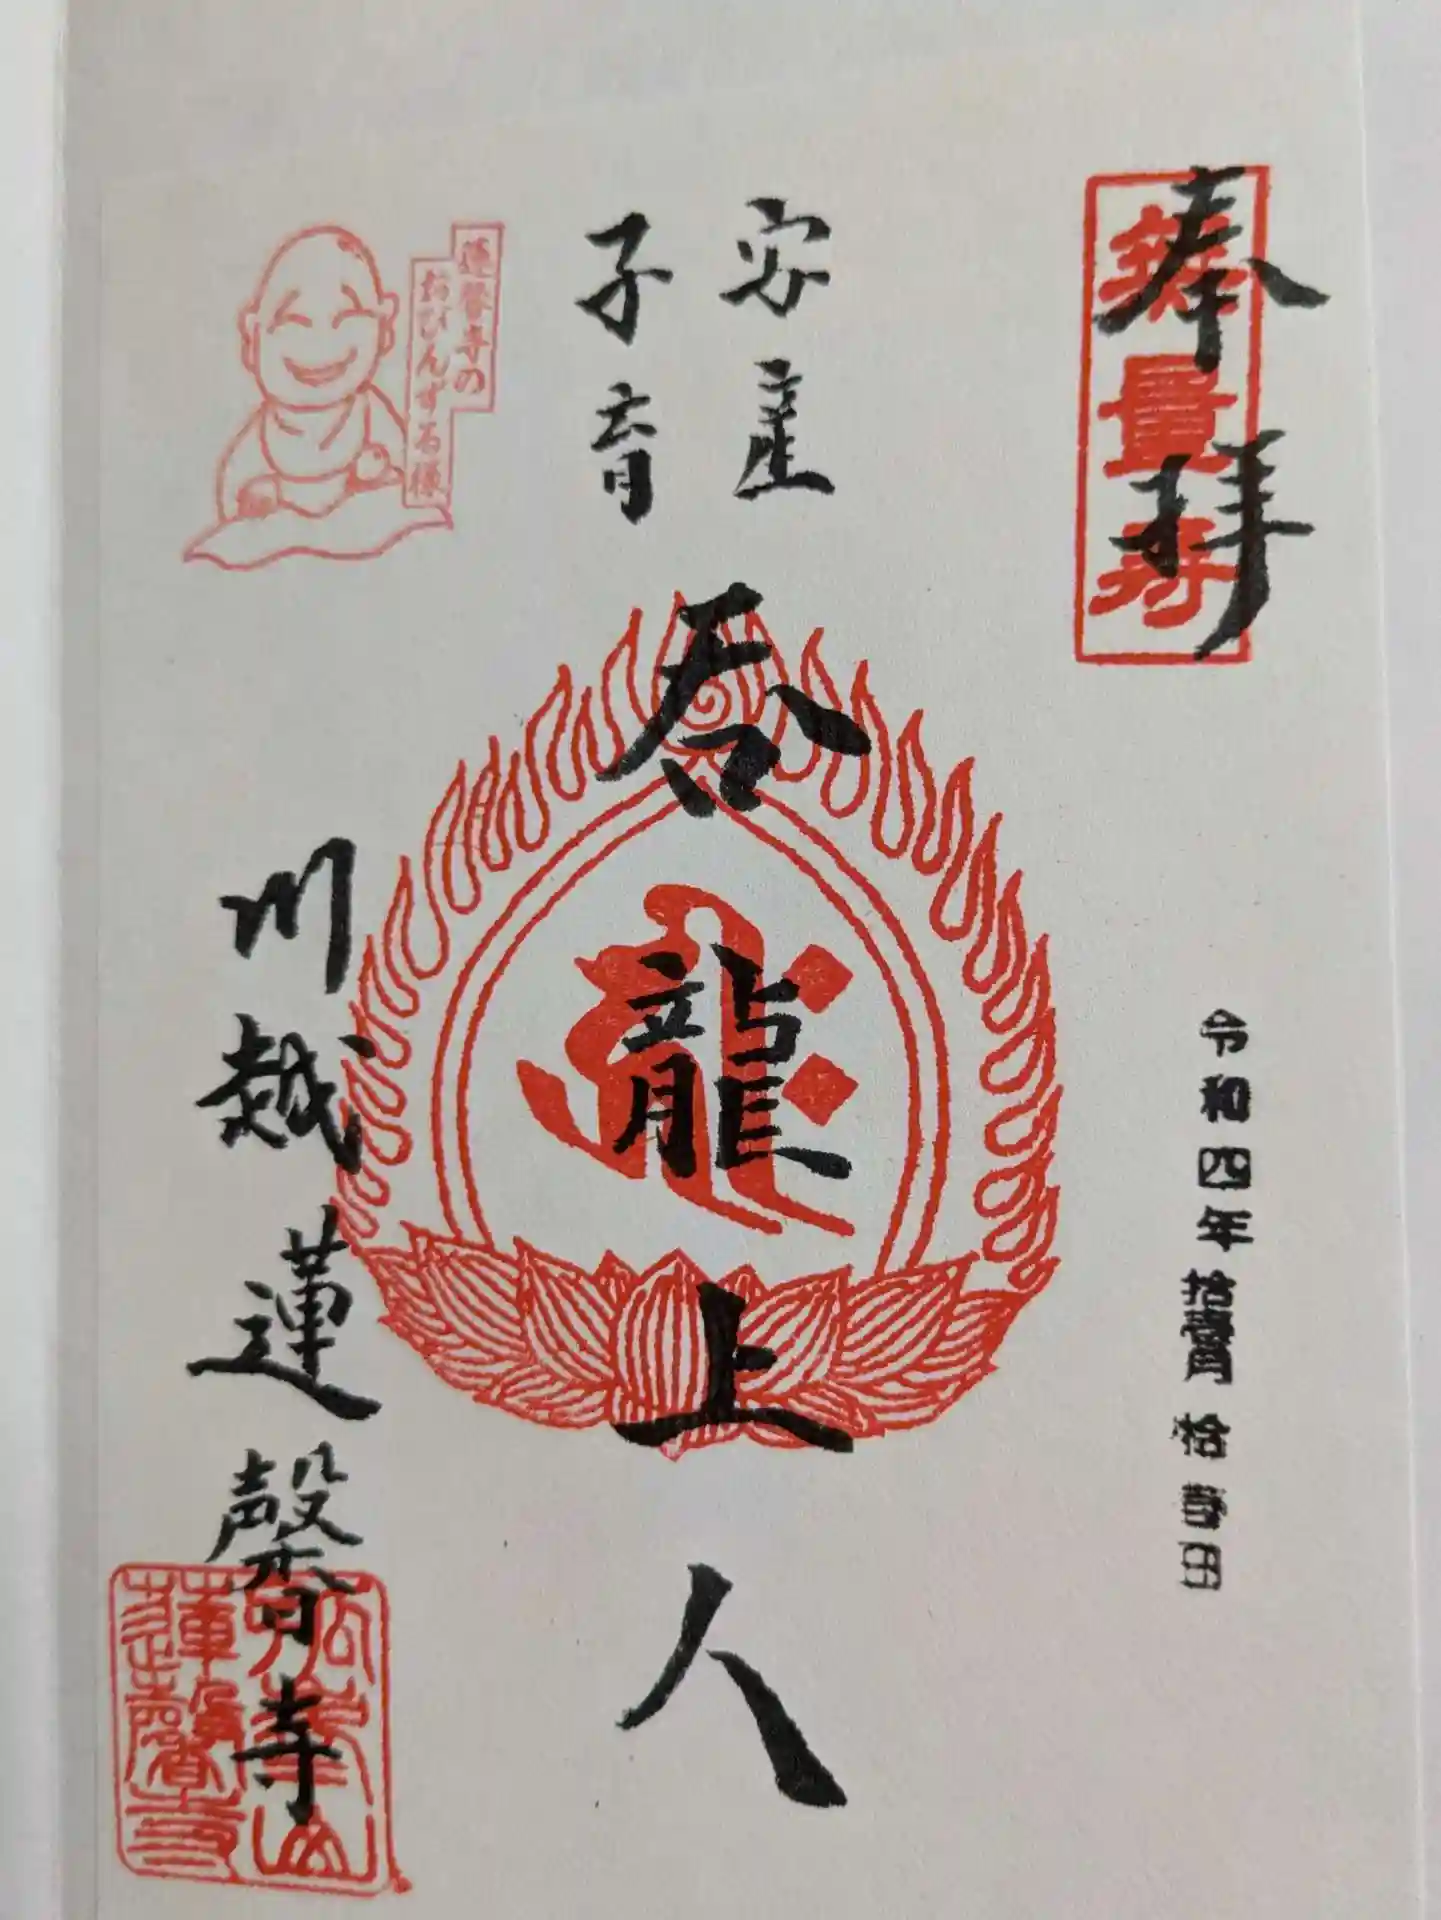 奉拝
無量寿
令和四年拾壹月拾壹日
安産
子育
呑龍上人
蓮馨寺の
おびんずる様
川越蓮馨寺
蓮馨寺